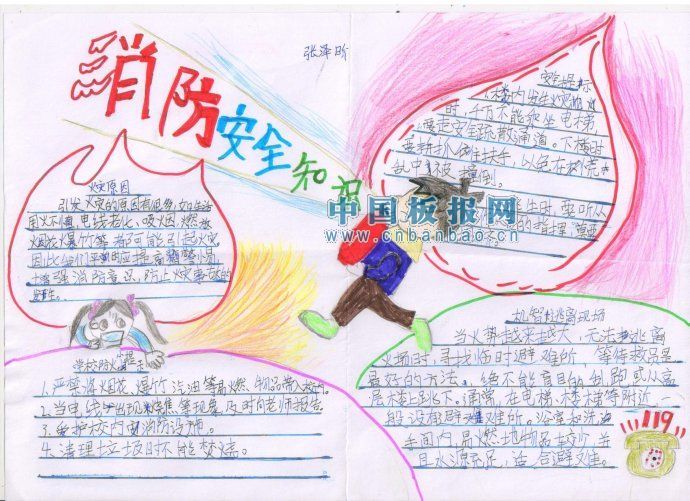 消防安全知识
张泽昕
火灾原因
引发火灾的原因有很多,如生活
用火不慎、电线老化、吸烟、燃放
烟花爆竹等都可能引起火灾,
增强消防意识,防止火灾事故的
发生。
学校防火提示
1.严禁将烟花、爆竹、汽油等易燃物品带入校内
2.当电线出现烧焦等现象及时向老师报告
3.爱护校内电消防设施。
4.清理垃圾时不能焚烧。
安全提示
楼内发生火灾的
时,千万不能乘坐电梯,
要走安全疏散通道。下楼时
要扶抓住扶手,以免在慌
乱中被撞倒。
中国板报网
www.cnbanbao.cn
机智逃离现场
当火势越来越大,无法逃离
火场时,寻找临时避难所,等待救员是
最好的方法,绝不能盲目的乱跑或从高
层楼上跳下。通常,在电梯、楼梯等附近一
般设有避难所。浴室和洗
手间内,易燃地物品较少,并
且水源充足,适合避难。
119